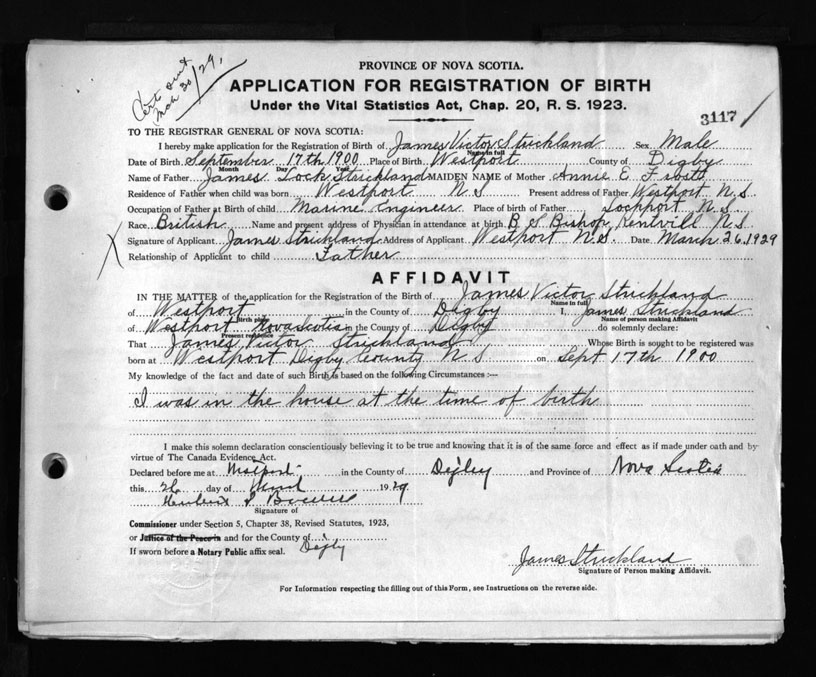 Cert sent
Mch 30/29,
PROVINCE OF NOVA SCOTIA.
APPLICATION FOR REGISTRATION OF BIRTH
Under the Vital Statistics Act, Chap. 20, R. S. 1923.
3117
TO THE REGISTRAR GENERAL OF NOVA SCOTIA:
I hereby make application for the Registration of Birth of James Victor Strickland Sex Male
Name in full
Date of Birth September 17th 1900 Place of Birth Westport County of Digby
Month Day Year
Name of Father James Lock Strickland MAIDEN NAME of Mother Annie E Frosts
Residence of Father when child was born Westport N S Present address of Father Westport N.S.
Occupation of Father at Birth of child Marine Engineer Place of birth of Father Lockport N.S.
Race British Name and present address of Physician in attendance at birth B S Bishop Kentvill N.S.
Signature of Applicant James Strickland Address of Applicant Westport N.S. Date March 26, 1929
X Relationship of Applicant to child Father
AFFIDAVIT
IN THE MATTER of the application for the Registration of the Birth of James Victor Strickland
Name in full
of Westport in the County of Digby I, James Strickland
Birth place Name of person making Affidavit
of Westport Nova Scotia in the County of Digby do solemnly declare:
Present residence
That James Victor Strickland Whose Birth is sought to be registered was
born at Westport Digby County N S on Sept 17th 1900
My knowledge of the fact and date of such Birth is based on the following Circumstances :—
I was in the house at the time of birth
I make this solemn declaration conscientiously believing it to be true and knowing that it is of the same force and effect as if made under oath and by
virtue of The Canada Evidence Act.
Declared before me at Westport in the County of Digby and Province of Nova Scotia
this 26 day of 1929
Signature of
Commissioner under Section 5, Chapter 38, Revised Statutes, 1923,
or Justice of the Peace in and for the County of Digby
If sworn before a Notary Public affix seal.
James Strickland
Signature of Person making Affidavit.
For Information respecting the filling out of this Form, see Instructions on the reverse side.